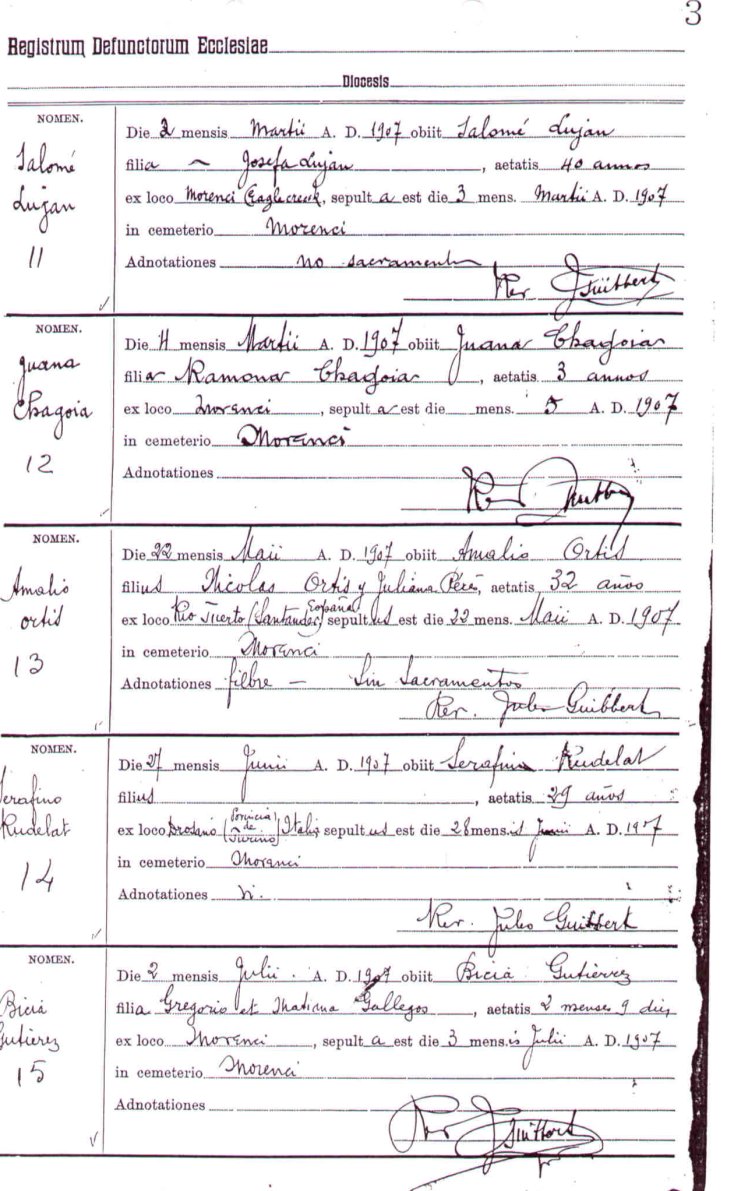 3
Registrum Defunctorum Ecclesiae
Diocesis
NOMEN.
Salomé
Lujan
11
Die 2 mensis Martii A. D. 1907 obiit Salomé Lujan
filia ~ Josefa Lujan, aetatis 40 annos
ex loco Morenci Eaglecreek, sepult a est die 3 mens. Martii A. D. 1907
in cemeterio Morenci
Adnotationes no sacraments
Rev J Guibbert
NOMEN.
Juana
Chagoia
12
Die 4 mensis Martii A. D. 1907 obiit Juana Chagoia
filia Ramona Chagoia, aetatis 3 annos
ex loco Morenci, sepult a est die mens. 5 A. D. 1907
in cemeterio Morenci
Adnotationes
Rev
NOMEN.
Amalio
Ortis
13
Die 22 mensis Maii A. D. 1907 obiit Amalio Ortis
filius Nicolas Ortis y Juliana Pérés, aetatis 32 años
ex loco Rio Tuerto (Santander) España sepult us est die 22 mens. Maii A. D. 1907
in cemeterio Morenci
Adnotationes fiebre — Sin Sacramentos
Rev. Jules Guibbert
NOMEN.
Serafino
Rudelat
14
Die 27 mensis Junii A. D. 1907 obiit Serafino Rudelat
filius , aetatis 29 años
ex loco (Provincia de Turino) Italie sepult us est die 28 mens. is Junii A. D. 1907
in cemeterio Morenci
Adnotationes
Rev. Jules Guibbert
NOMEN.
Bicia
Gutierez
15
Die 2 mensis Julii. A. D. 1907 obiit Bicia Gutierrez
filia Gregorio et Gallegos, aetatis 2 menses 9 dies
ex loco Morenci, sepult a est die 3 mens. is Julii A. D. 1907
in cemeterio Morenci
Adnotationes
Rev J Guibbert